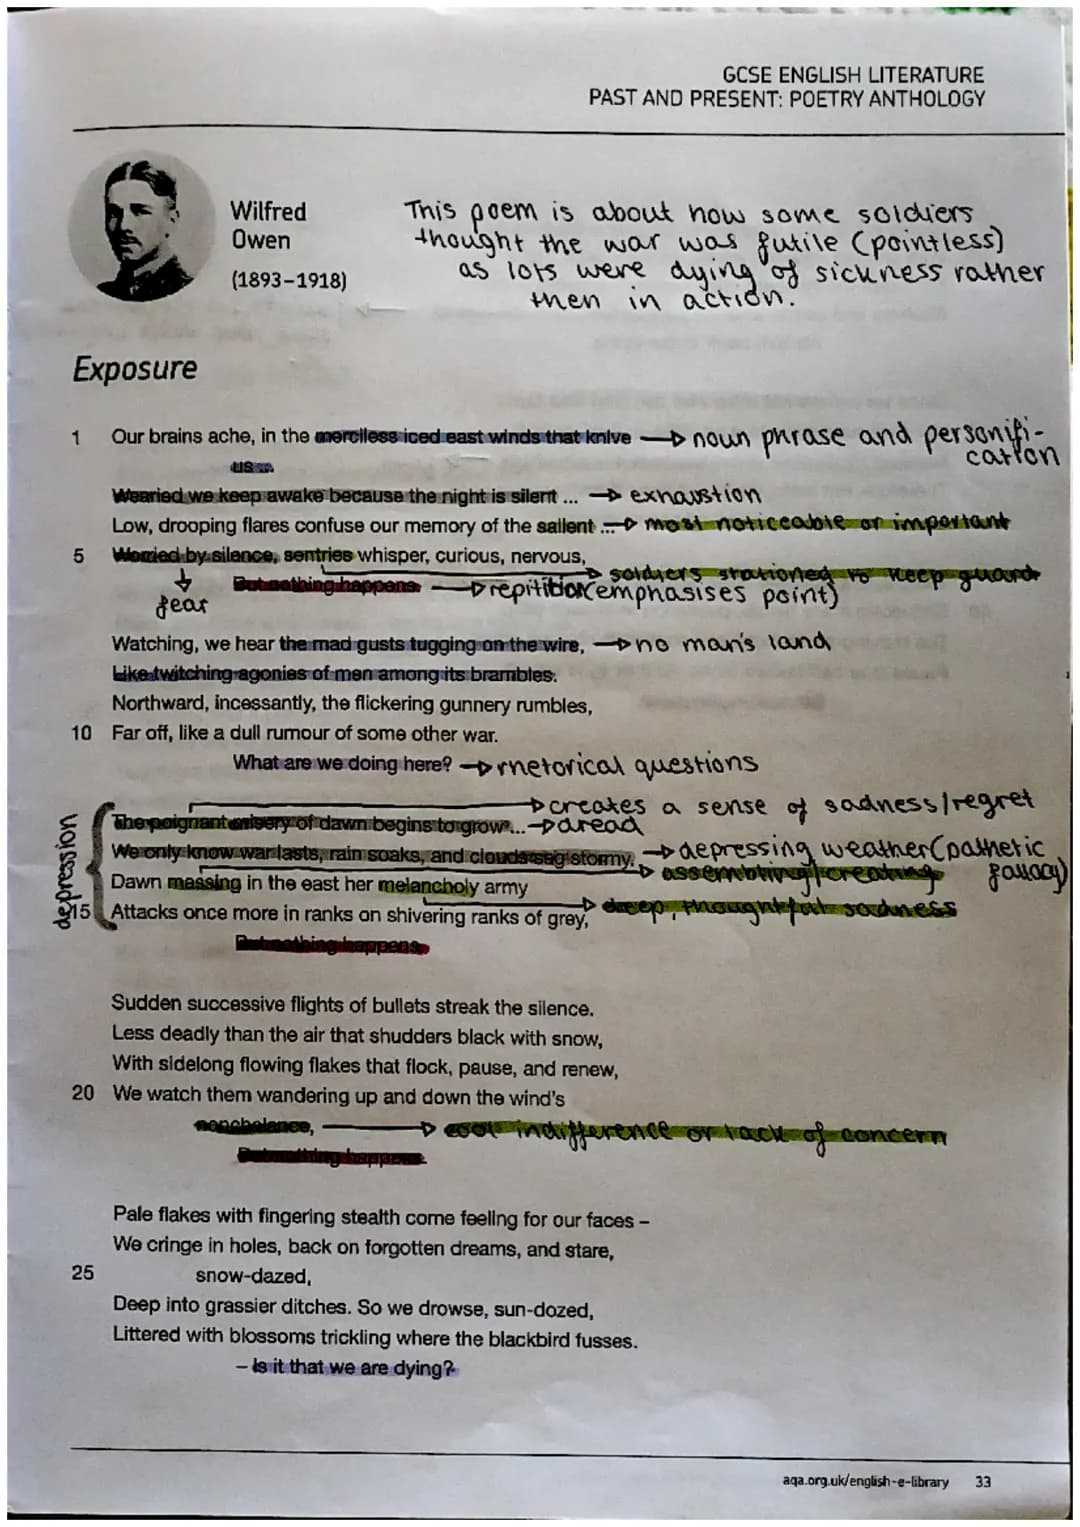 GCSE ENGLISH LITERATURE
PAST AND PRESENT: POETRY ANTHOLOGY
Wilfred
Owen
(1893–1918)
This poem is about how some soldiers
thought the war was futile (pointless)
as lots were dying of sickness rather
then in action.
Exposure
1 Our brains ache, in the merciless iced east winds that knive → noun phrase and personifi-
cation
us ...
Wearied we keep awake because the night is silent ... → exhaustion
Low, drooping flares confuse our memory of the salient ... → most noticeable or important
5 Worried by silence, sentries whisper, curious, nervous,
soldiers stationed to keep guard
fear
But nothing happens. → repitition (emphasises point)
Watching, we hear the mad gusts tugging on the wire, → no man's land
Like twitching agonies of men among its brambles.
Northward, incessantly, the flickering gunnery rumbles,
10 Far off, like a dull rumour of some other war.
What are we doing here? → rhetorical questions
creates a sense of sadness/regret
The poignant misery of dawn begins to grow ... → dread
We only know war lasts, rain soaks, and clouds sag stormy. → depressing weather (pathetic
fallacy)
assembling/creating
depression
Dawn massing in the east her melancholy army
15 Attacks once more in ranks on shivering ranks of grey, deep, thoughtful sadness
But nothing happens.
Sudden successive flights of bullets streak the silence.
Less deadly than the air that shudders black with snow,
With sidelong flowing flakes that flock, pause, and renew,
20 We watch them wandering up and down the wind's
nonchalance, → cool indifference or lack of concern
But nothing happens.
Pale flakes with fingering stealth come feeling for our faces –
We cringe in holes, back on forgotten dreams, and stare,
25 snow-dazed,
Deep into grassier ditches. So we drowse, sun-dozed,
Littered with blossoms trickling where the blackbird fusses.
– Is it that we are dying?
aqa.org.uk/english-e-library 33